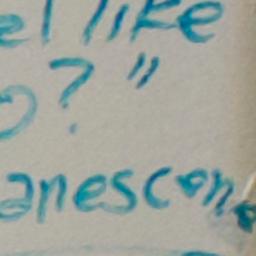 el like
o? "
anescen